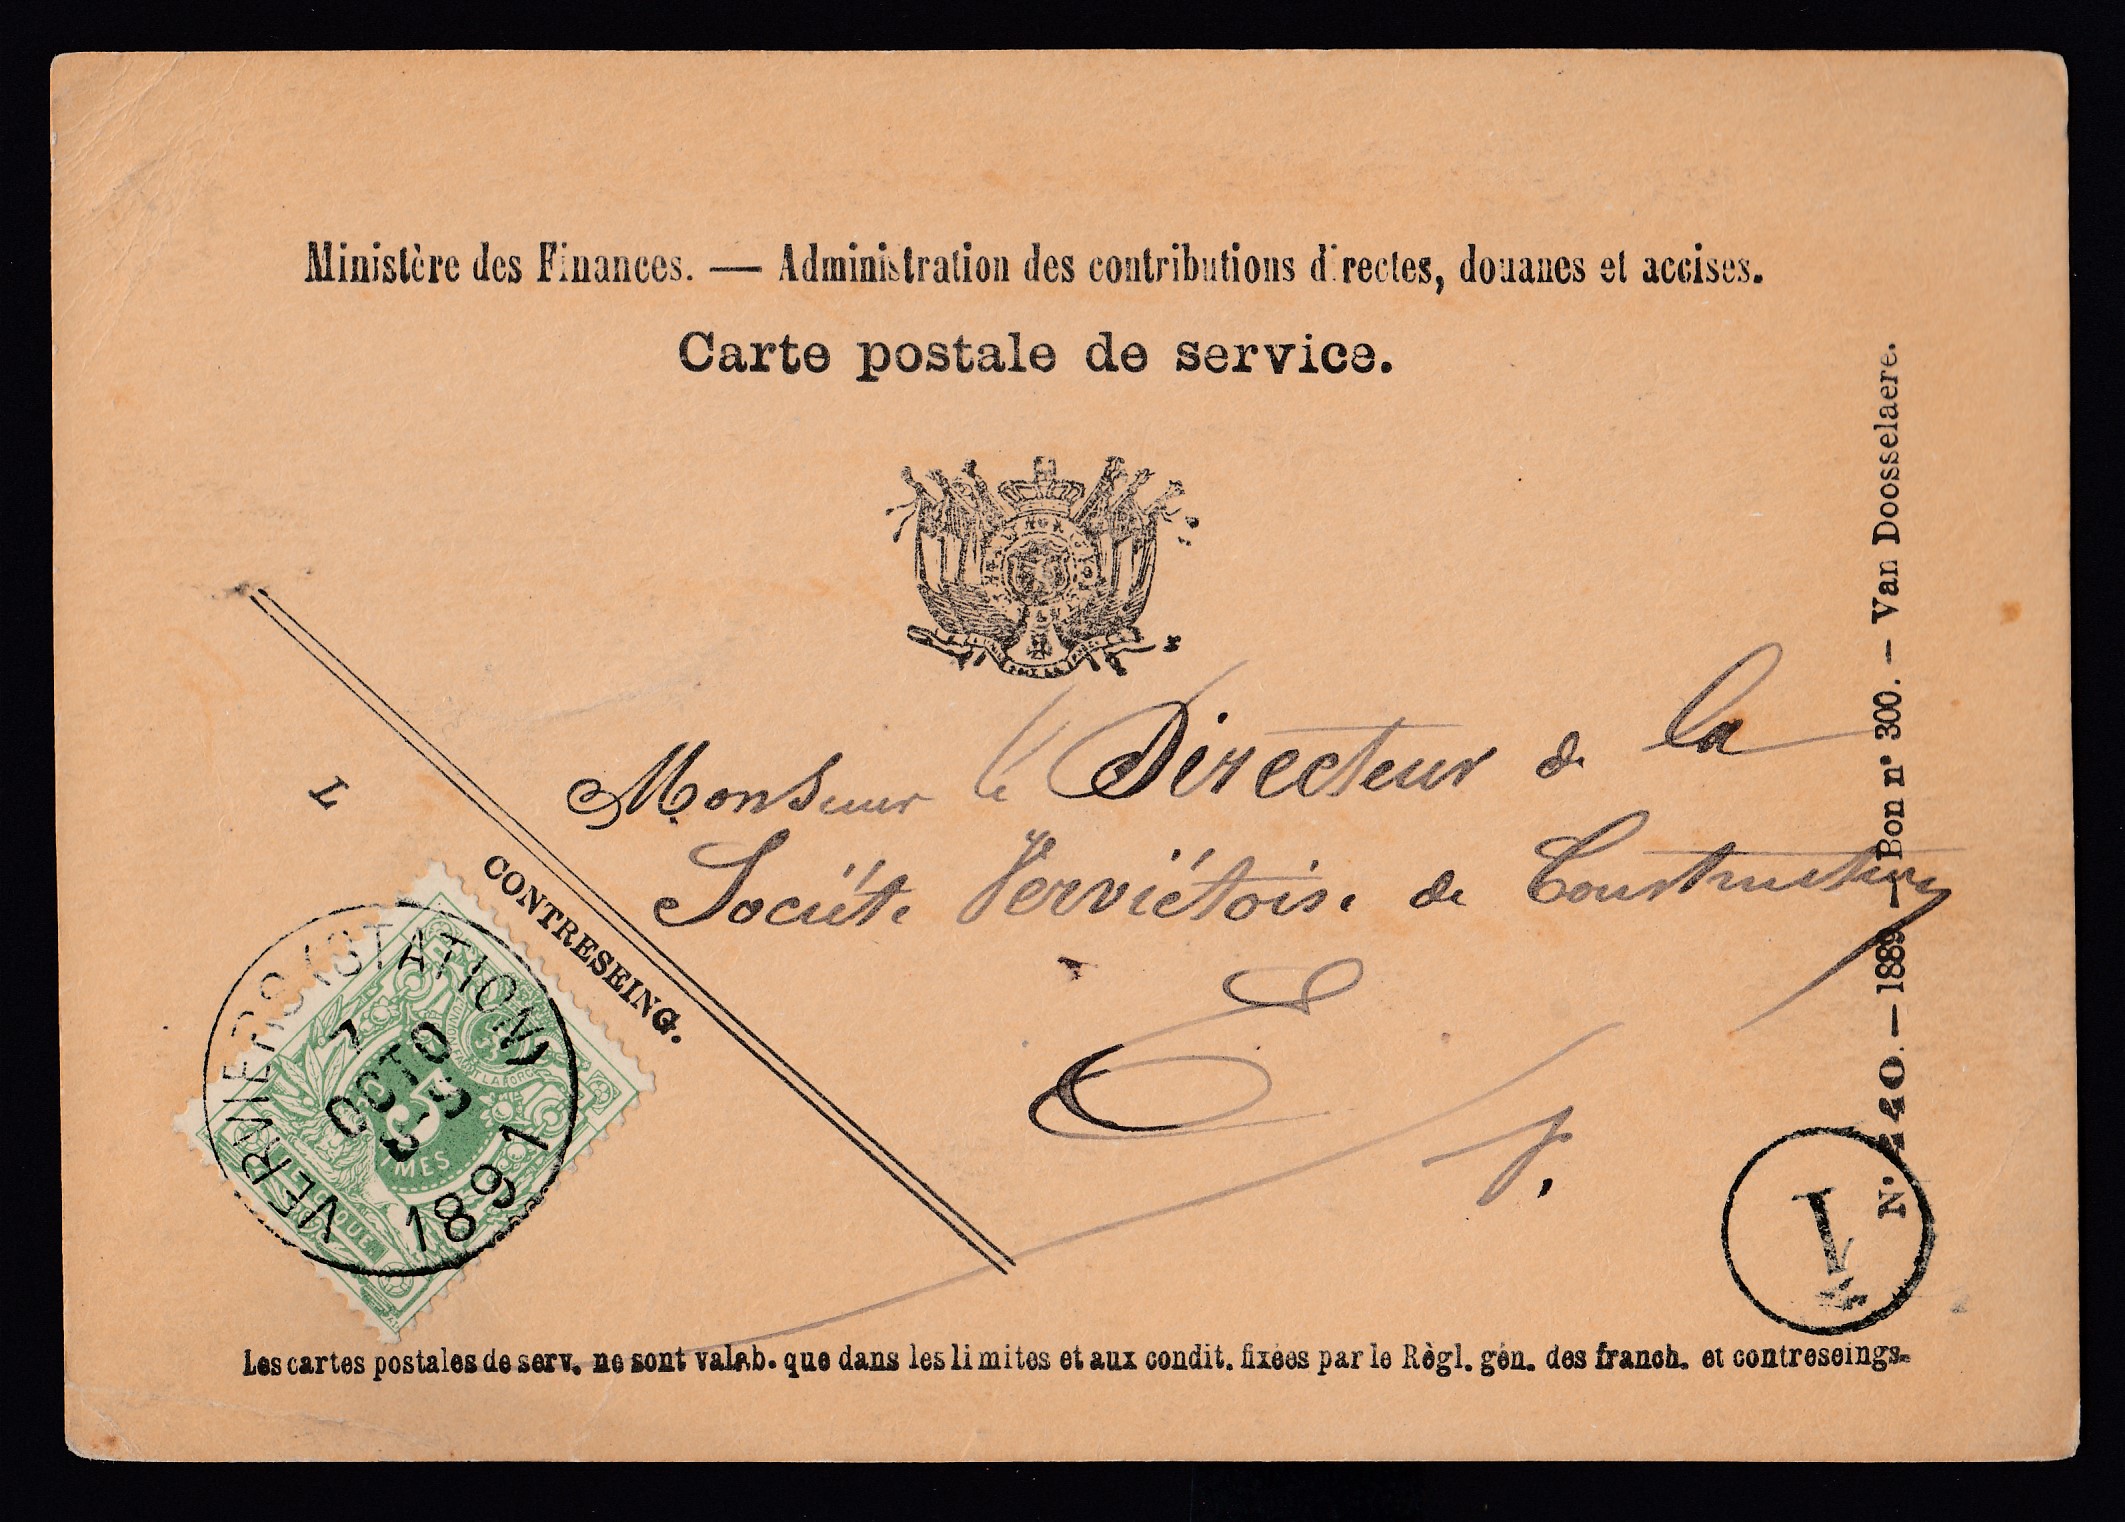 Ministère des Finances. — Administration des contributions directes, douanes et accises.
Carte postale de service.
Monsieur le Directeur de la
Société Verviétoise de Construction
E. V.
CONTRESEING.
VERVIERS (STATION)
7
OCTO
1891
5
Les cartes postales de serv. ne sont valab. que dans les limites et aux condit. fixées par le Règl. gén. des franch. et contreseings.
N° 440. — 1889 — Bon n° 300. — Van Doosselaere.
1